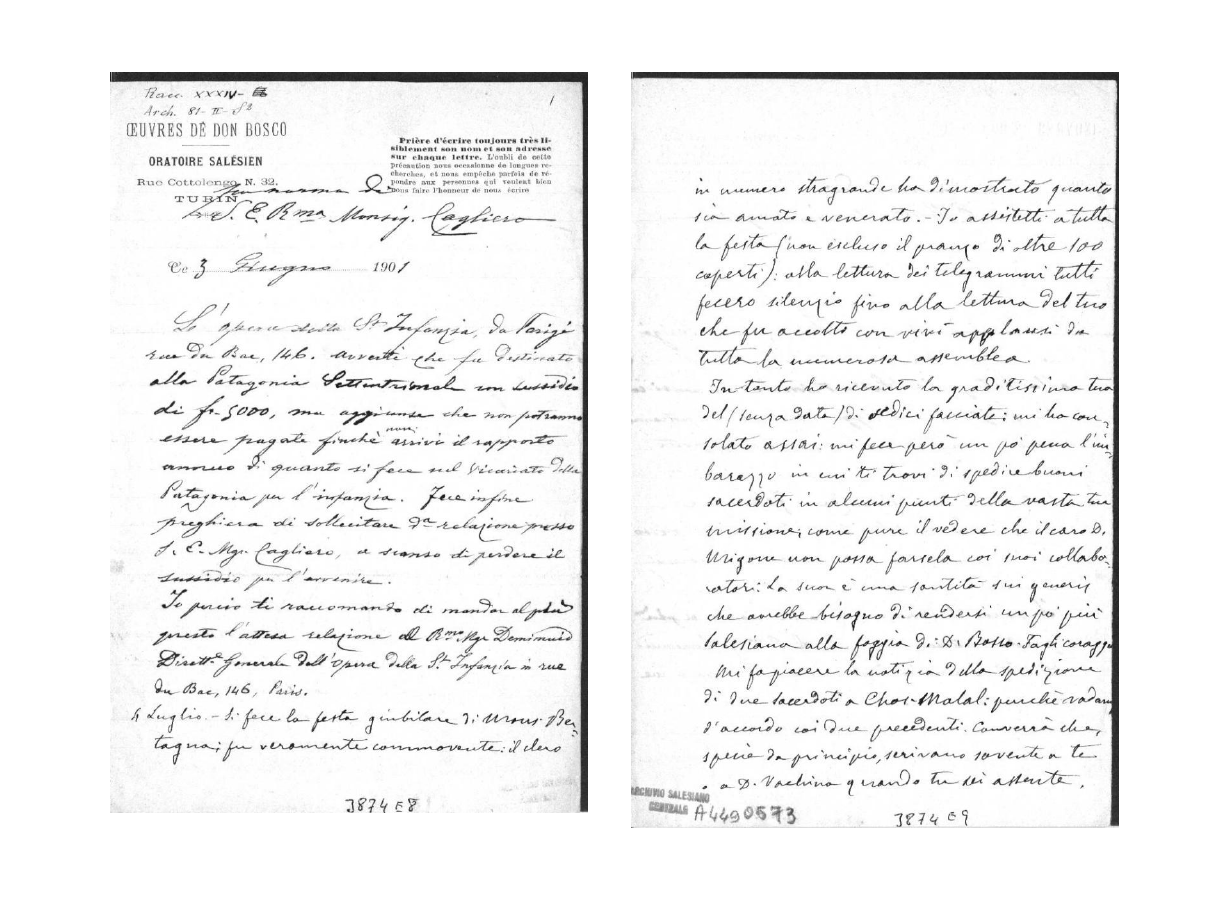 Racc. XXXIV-
Arch. 81-II-S2
1
ŒUVRES DE DON BOSCO
ORATOIRE SALÉSIEN
Rue Cottolengo, N. 32.
TURIN
Prière d'écrire toujours très li-
siblement son nom et son adresse
sur chaque lettre. L'oubli de cette
précaution nous occasionne de longues re-
cherches, et nous empêche parfois de ré-
pondre aux personnes qui veulent bien
nous faire l'honneur de nous écrire
norma di
S. E. Rma Monsig. Cagliero
Ce 3 Giugno 1901
L'opera della Sta Infanzia, da Parigi
rue du Bac, 146. avvertì che fu destinato
alla Patagonia Settentrionale un sussidio
di fr. 5000, ma aggiunse che non potranno
essere pagate finchè non arrivi il rapporto
annuo di quanto si fece nel Vicariato della
Patagonia per l'infanzia. Fece infine
preghiera di sollecitare da relazione presso
S. E. Mgr. Cagliero, a scanso di perdere il
sussidio per l'avvenire.
Io perciò ti raccomando di mandar al più
presto l'attesa relazione al Rmo Mgr
Dirett. Generale dell'Opera della Sta Infanzia in rue
du Bac, 146, Paris.
4 Luglio. - Si fece la festa giubilare di Mons. Ber-
tagna; fu veramente commovente: il clero
3874 E8
in numero stragrande ha dimostrato quanto
sia amato e venerato. - Io assistetti a tutta
la festa (non escluso il pranzo di oltre 100
coperti): alla lettura dei telegrammi tutti
fecero silenzio fino alla lettura del tuo
che fu accolto con vivi applausi da
tutta la numerosa assemblea.
In tanto ho ricevuto la graditissima tua
del (senza data) di sedici facciate: mi ha con-
solato assai: mi fece però un pò pena l'im-
barazzo in cui ti trovi di spedire buoni
sacerdoti in alcuni punti della vasta tua
missione; come pure il vedere che il caro D.
Migone non possa farsela coi suoi collabo-
ratori: La sua è una santità sui generis
che avrebbe bisogno di rendersi un pò più
salesiana alla foggia di: D. Bosco. Fagli coraggio
Mi fa piacere la notizia della spedizione
di due sacerdoti a Chos-Malal: purchè vadano
d'accordo coi due precedenti. Converrà che,
specie da principio, scrivano sovente a te
o a D. Vachina quando tu sei assente.
ARCHIVIO SALESIANO
CENTRALE
A4490573
3874 E9